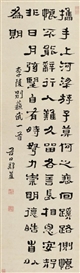 攜手上河梁游子暮何之徘徊蹊路側
悢悢不得辭行人難久留各言長相思安知
非日月弦望自有時努力崇明德皓首以
為期
李陵別蘇武一首